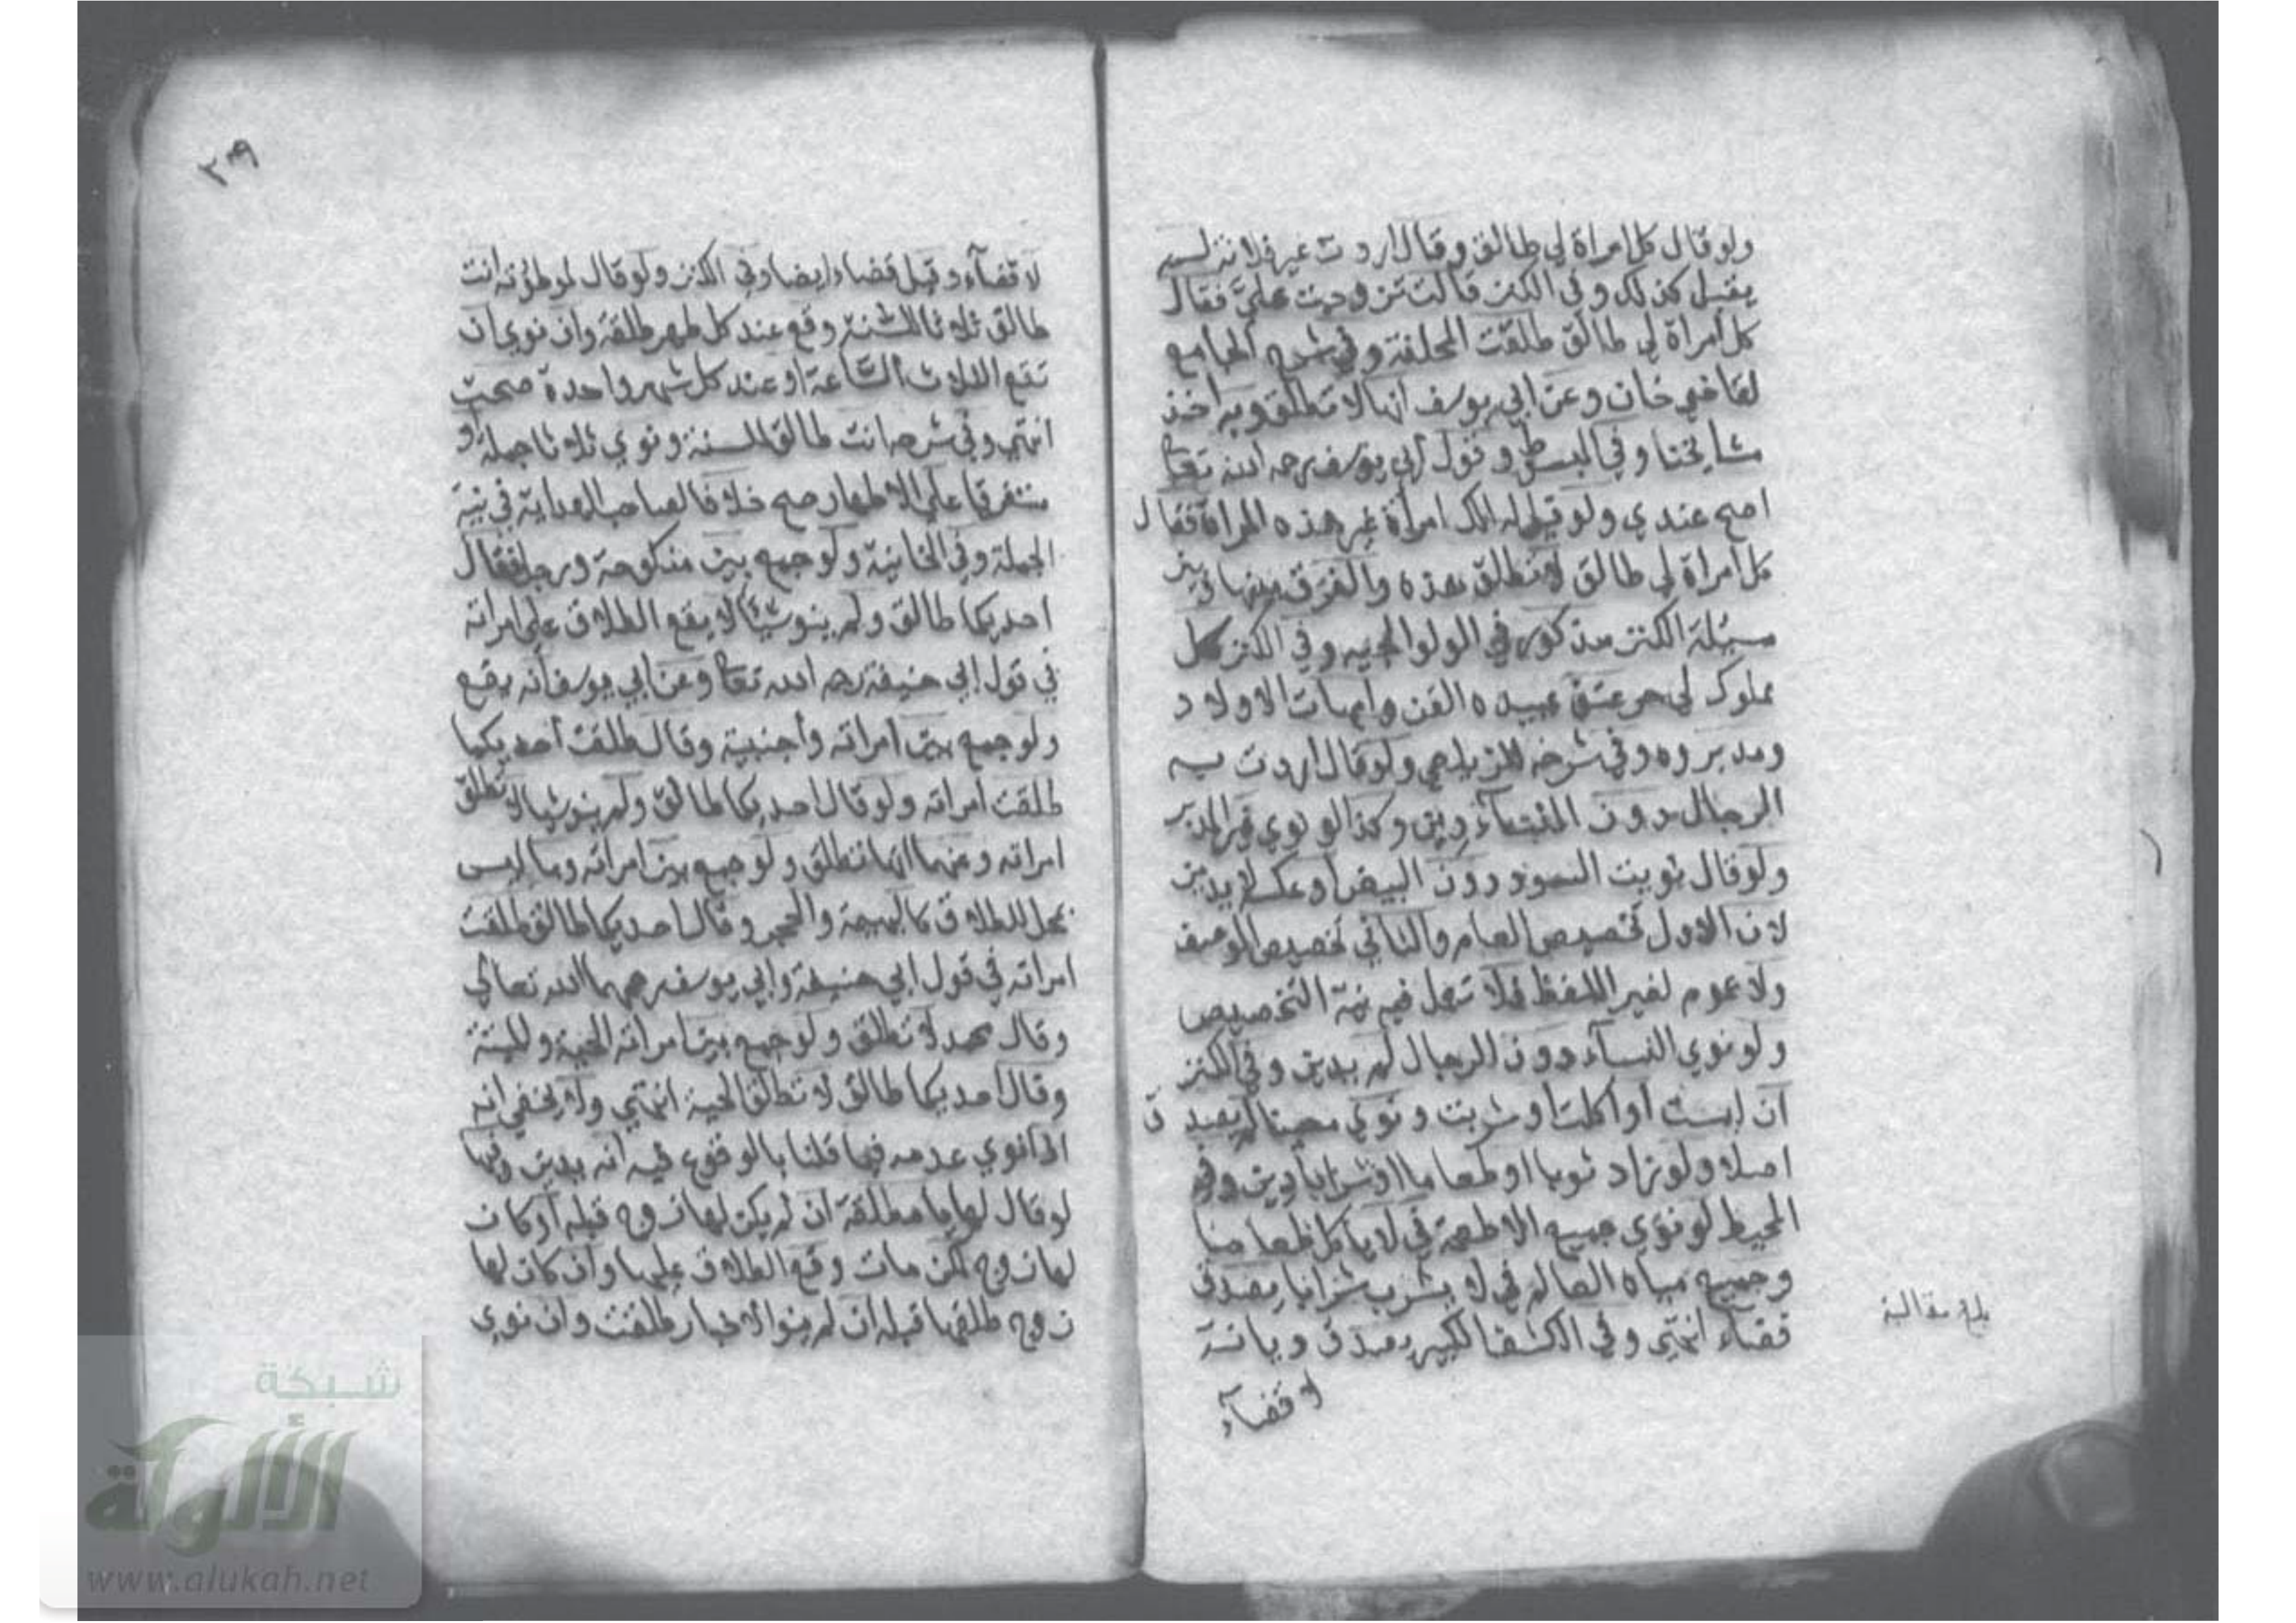 ولو قال كل امراة لي طالق وقال اردت غير فلانة لم
يقبل كذلك وفي الكنز قالت تزوجت عليّ فقال
كل امراة لي طالق طلقت المحلفة وفي شرح الجامع
لقاضي خان وعن ابي يوسف انها لا تطلق وبه اخذ
مشايخنا وفي المبسوط وقول ابي يوسف رحمه الله تعالى
اصح عندي ولو قيل له الك امراة غير هذه المراة فقال
كل امراة لي طالق لا تطلق هذه والفرق بينها وبين
مسئلة الكنز مذكور في الولوالجيه وفي الكنز كل
مملوك لي حر عتق عبيده القن وامهات الاولاد
ومدبروه وفي شرحه للزيلعي ولو قال اردت به
الرجال دون النساء دين وكذا لو نوي غير المدبر
ولو قال نويت السود دون البيض او عكسه لا يدين
لان الاول تخصيص العام والثاني تخصيص الوصف
ولا عموم لغير اللفظ فلا تعمل فيه نية التخصيص
ولو نوي النسآء دون الرجال لم يدين وفي الكنز
ان لبست او اكلت او شربت ونوي معينا لم يصدق
اصلا ولو زاد ثوبا او طعاما او شرابا دين وفي
المحيط لو نوي جميع الاطعمة في لا ياكل طعاما
وجميع مياه العالم في لا يشرب شرابا يصدق
قضاء انتهي وفي الكشف الكبير يصدق ديانة
لا قضآء
بلغ مقابلة
٢٣٩
لا قضآء وقيل قضاء ايضا وفي الكنز ولو قال لموطوته انت
طالق ثلاثا للسنة وقع عند كل طهر طلقة وان نوي ان
تقع الثلاث السّاعة او عند كل شهر واحدة صحت
انتهي وفي شرحه انت طالق للسنة ونوي ثلاثا جملة او
متفرقا علي الاطهار صح خلافا لصاحب الهداية في نية
الجملة وفي الخانية ولو جمع بين منكوحة ورجل فقال
احديكما طالق ولم ينو شيئا لا يقع الطلاق علي امراته
في قول ابي حنيفة رحمه الله تعالى وعن ابي يوسف انه يقع
ولو جمع بين امراته واجنبية وقال طلقت احديكما
طلقت امراته ولو قال احديكما طالق ولم ينو شيا لا تطلق
امراته وعنهما انها تطلق ولو جمع بين امراته وما ليس
بمحل للطلاق كالبهيمة والحجر وقال احديكما طالق طلقت
امراته في قول ابي حنيفة وابي يوسف رحمهما الله تعالي
وقال محمد لا تطلق ولو جمع بين امراته الحية والميتة
وقال احديكما طالق لا تطلق الحية انتهي ولا يخفي انه
اذا نوي عدمه فيما قلنا بالوقوع فيه انه يدين وفيها
لو قال لها يا مطلقة ان لم يكن لها زوج قبله او كان
لها زوج لكن مات وقع الطلاق عليها وان كان لها
زوج طلقها قبله ان لم ينو الاخبار طلقت وان نوي
شبكة
الألوكة
www.alukah.net